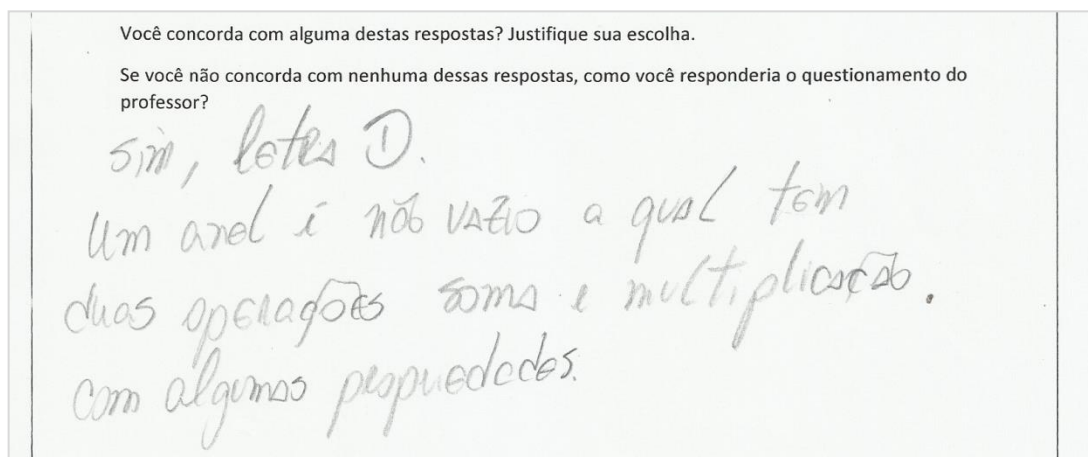 Você concorda com alguma destas respostas? Justifique sua escolha.
Se você não concorda com nenhuma dessas respostas, como você responderia o questionamento do
professor?
sim, letra D.
Um anel é não vazio a qual tem
duas operações soma e multiplicação.
com algumas propriedades.